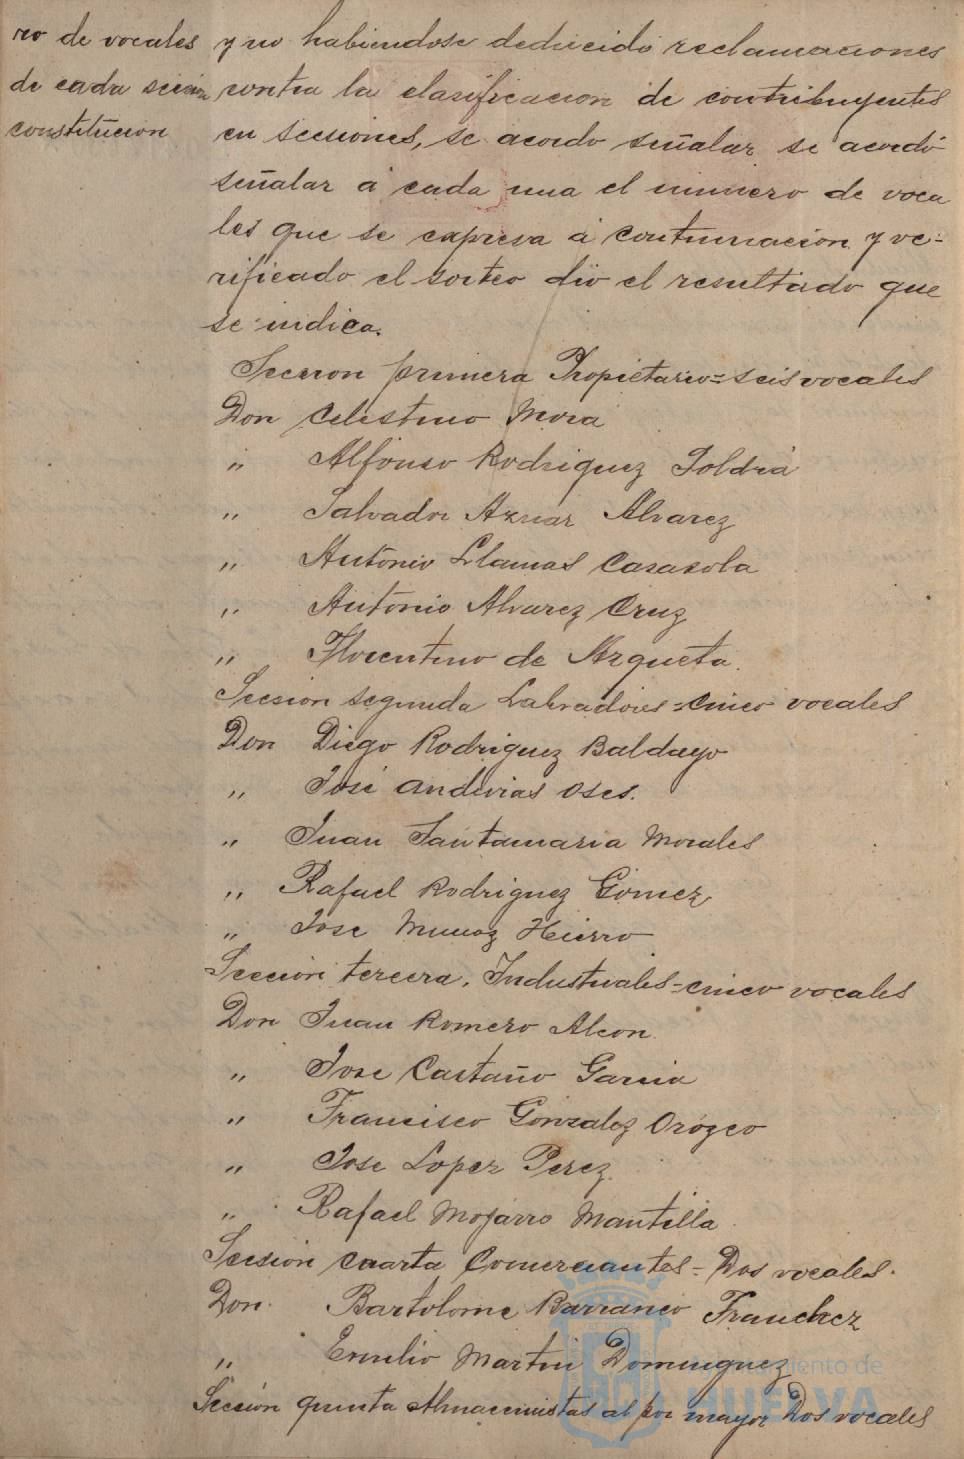 ro de vocales
de cada sección
constitución
y no habiendose deducido reclamaciones
contra la clasificacion de contribuyentes
en secciones, se acordo señalar se acordó
señalar á cada una el numero de voca
les que se expresa á continuación y ve=
rificado el sorteo dió el resultado que
se indica.
Seccion primera Propietario = seis vocales
Don Celestino Mora
" Alfonso Rodriguez Toldrá
" Salvador Aznar Alvarez
" Antonio Llamas Casasola
" Antonio Alvarez Cruz
" Florentino de Azqueta.
Seccion segunda Labradores = cinco vocales
Don Diego Rodriguez Baldayo
" José Andivias Oses.
" Juan Santamaria Morales
" Rafael Rodriguez Gómez
" Jose Munoz Hierro
Sección tercera. Industriales = cinco vocales
Don Juan Romero Alcon
" Jose Castaño Garcia
" Francisco González Orózco
" Jose Lopez Perez.
" Rafael Mojarro Mantilla
Seccion cuarta Comerciantes = Dos vocales.
Don Bartolome Barranco Franchez
" Emilio Martin Dominguez
Sección quinta Almacenistas al por mayor Dos vocales
Ayuntamiento de
HUELVA